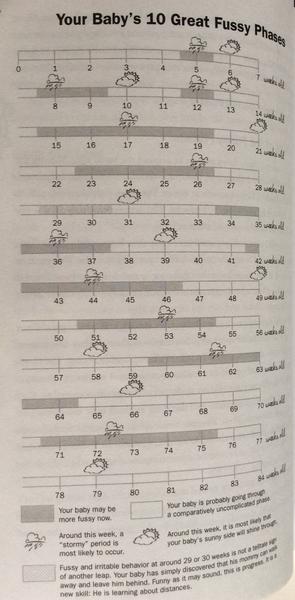 Your Baby's 10 Great Fussy Phases
0 1 2 3 4 5 6 7 weeks old
8 9 10 11 12 13 14 weeks old
15 16 17 18 19 20 21 weeks old
22 23 24 25 26 27 28 weeks old
29 30 31 32 33 34 35 weeks old
36 37 38 39 40 41 42 weeks old
43 44 45 46 47 48 49 weeks old
50 51 52 53 54 55 56 weeks old
57 58 59 60 61 62 63 weeks old
64 65 66 67 68 69 70 weeks old
71 72 73 74 75 76 77 weeks old
78 79 80 81 82 83 84 weeks old
Your baby may be
more fussy now.
Your baby is probably going through
a comparatively uncomplicated phase.
Around this week, a
"stormy" period is
most likely to occur.
Around this week, it is most likely that
your baby's sunny side will shine through.
Fussy and irritable behavior at around 29 or 30 weeks is not a telltale sign
of another leap. Your baby has simply discovered that his mommy can walk
away and leave him behind. Funny as it may sound, this is progress. It is a
new skill: He is learning about distances.